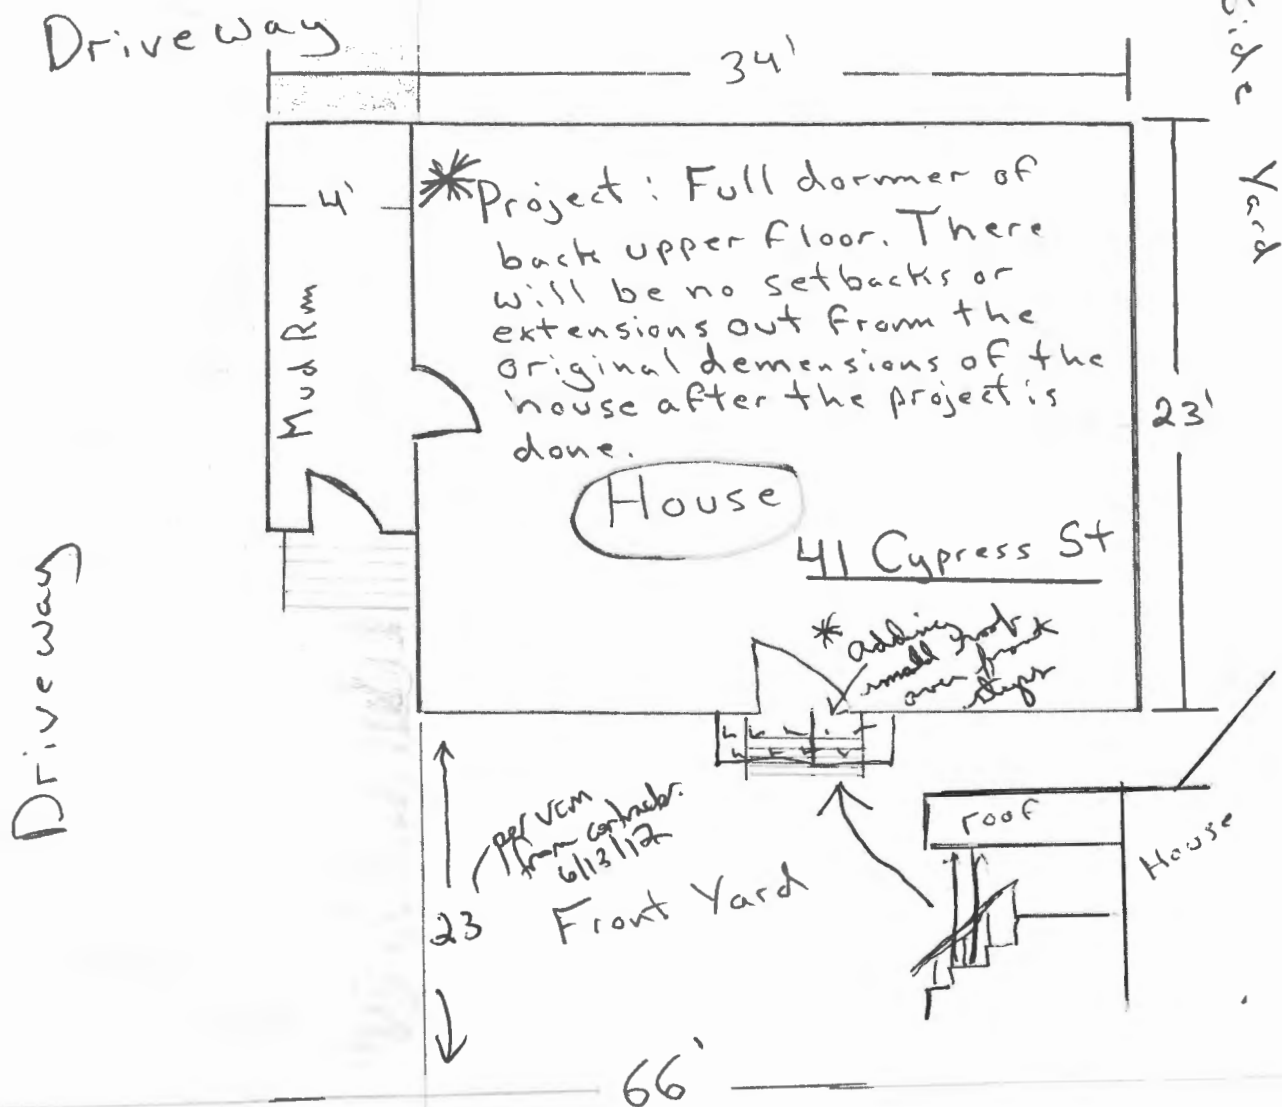 Driveway
34'
Side Yard
4'
* Project: Full dormer of
back upper floor. There
will be no setbacks or
extensions out from the
original demensions of the
house after the project is
done.
Mud Rm
23'
House
41 Cypress St
* adding
small roof
over front
steps
Driveway
per VCM
from contractor.
6/13/12
23
Front Yard
roof
House
66'